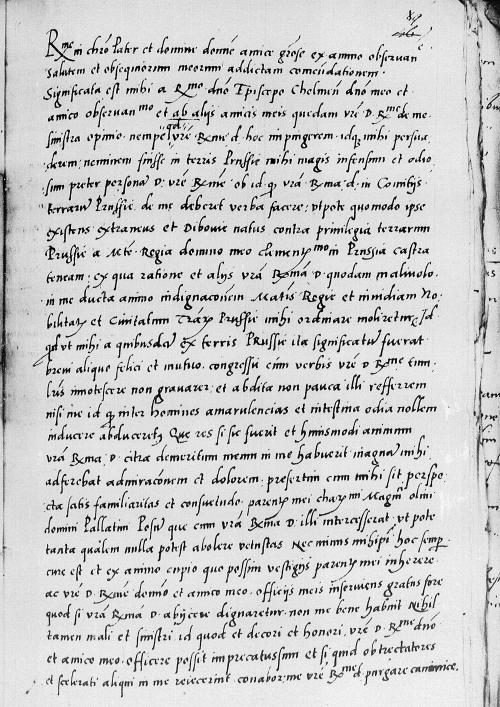 R^me in chro Pater et domine domine amice grose ex animo observan^e
Salutem et obsequiorum meorum addictam comendationem.
Significata est mihi a R^mo dno Episcopo Chelmen dno meo et
amico observan^mo et ab alijs amicis meis quedam vre D. R^me de me
sinistra opinio nempe qd vre Rme d. hoc impingerem idq mihi persua
derem: neminem fuisse in terris Prussie mihi magis infensum et odio
sum preter personam D. vre Rme. ob id q vra Rma d. in Comitijs
terrarum Prussie. de me deberet verba facere: utpote quomodo ipse
existens extraneus et Dibowie natus contra privilegia terrarum
Prussie a Mte. Regia domino meo clemen^mo in Prussia castra
teneam: ex qua ratione et alijs vra Rma D. quodam malivolo
in me ducta animo indignaconem Matis Regie et invidiam No
bilitatis et Civitatum Prussie mihi ordinare moliretur. Id
qd ut mihi a quibusdam ex terris Prussie ita significatum fuerat
brevi aliquo felici et mutuo. congressu cum verbis vre D R^me
innotescere non gravarer: et abdita non pauca illi refferrem
nisi me id q inter homines amarulencias et intestina odia nollem
inducere abduceret. Que res si sic fuerit et huiusmodi animum
vra Rma. D. citra demeritum meum in me habuerit magnam mihi
adferebat admiraconem et dolorem. presertim cum mihi sit perspe
cta satis familiaritas et consuetudo. parentis mei cha^mi Magni olim
domini Pallatini Posn que cum vra Rma D. illi intercesserat. ut pote
tanta qualem nulla potest abolere vetustas Nec minus mihi hoc semp
cure est et ex animo cupio quo possim vestigijs parentis mei inherere
ac vre D. Rme domino et amico meo. officijs meis inserviens gratus fore
quod si vra Rma D. abijcere dignaretur. non me bene habuit Nihil
tamen mali et sinistri id quod et decori et honori. vre D. R^me dno
et amico meo. officere possit imprecatus sum et si quid obtrectatores
et scelerati aliqui in me reiecerint. conabor: me vre R^me d. purgare